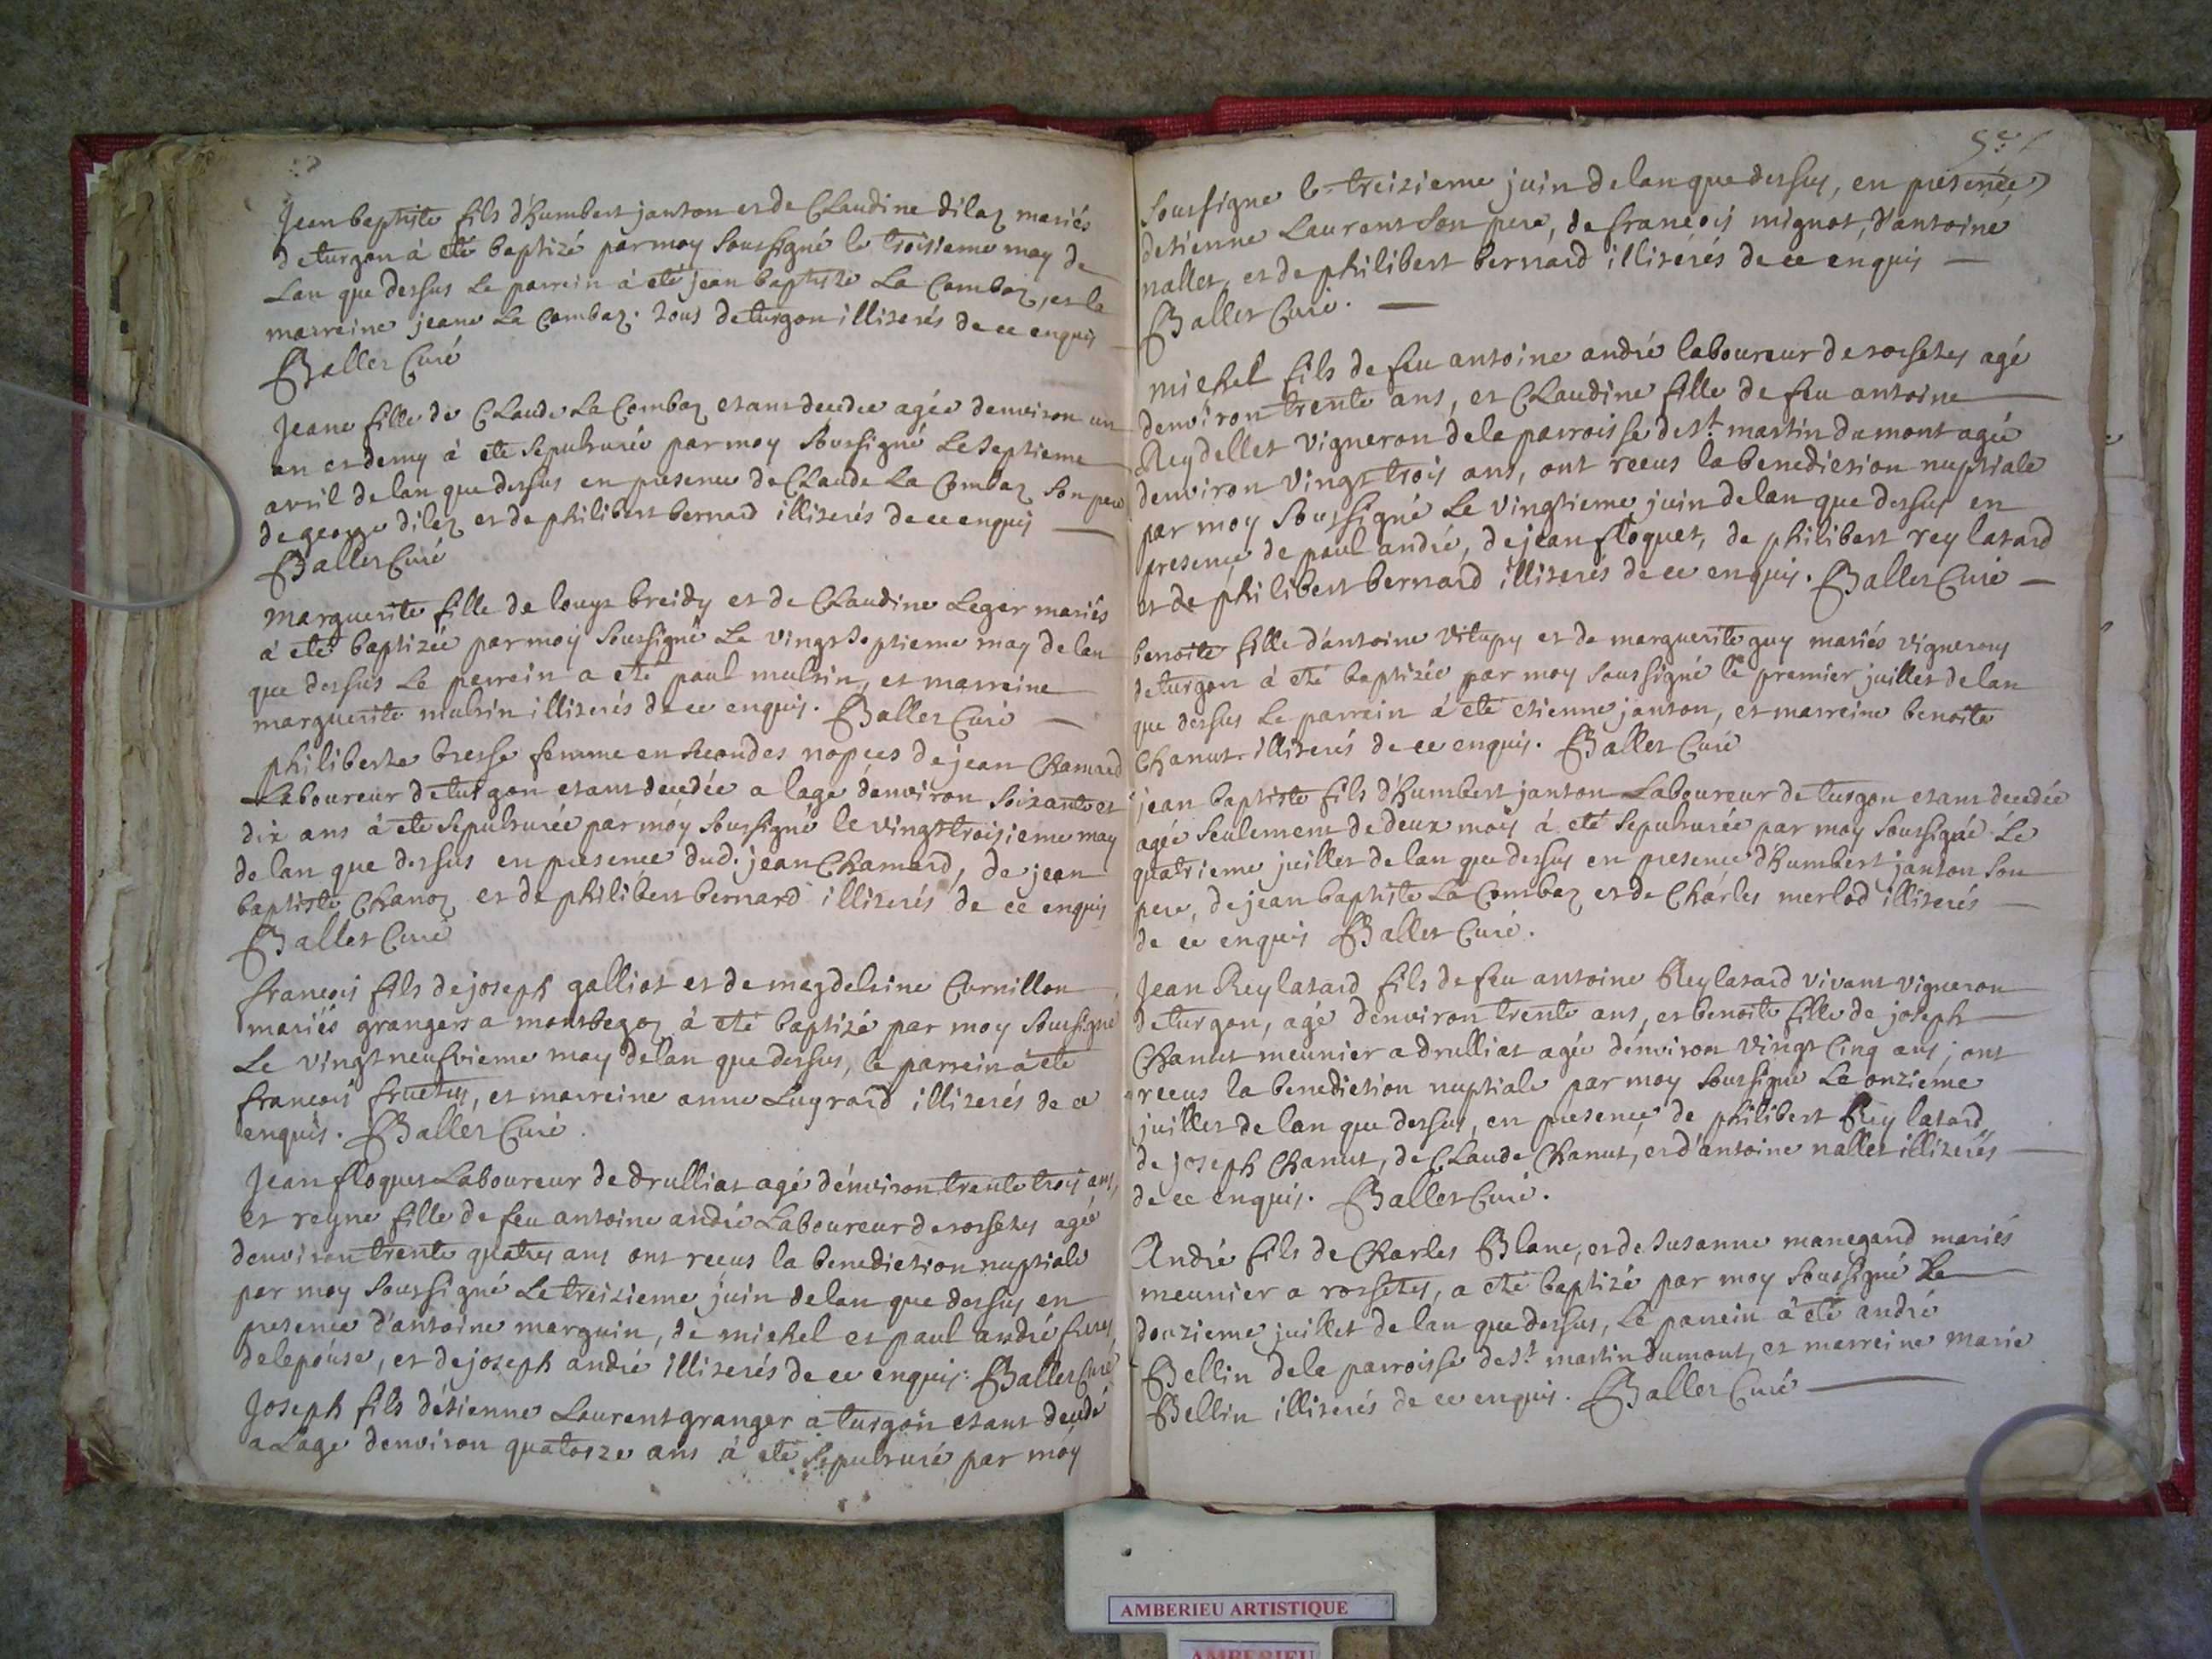 Jean baptiste fils d'humbert janton et de Claudine dilaz mariés
de turgon à eté baptizé par moy soussigné le troisieme may de
Lan que dessus Le parrein à eté jean baptiste La Combaz, et la
marreine jeane La Combaz. tous de turgon illiterés de ce enquis
Ballet Curé
Jeane fille de Claude La Combaz etant decedée agée denviron un
an et demy à eté sepulturée par moy soussigné Le septieme
avril de lan que dessus en presence de Claude La Combaz son pere
de george dilaz et de philibert bernard illiterés de ce enquis
Ballet Curé
marguerite fille de louys breidy et de Claudine Leger mariés
à eté baptizée par moy soussigné Le vingt septieme may de lan
que dessus Le parrein a eté paul multin, et marreine
marguerite multin illiterés de ce enquis. Ballet Curé
philiberte bresse femme en secondes nopces de jean Chamard
Laboureur de turgon etant decedée a lage denviron soixante et
dix ans à eté sepulturée par moy soussigné le vingt troisieme may
de lan que dessus en presence dud. jean Chamard, de jean
baptiste Chanoz et de philibert bernard illiterés de ce enquis
Ballet Curé
françois fils de joseph galliot et de magdeleine Cornillon
mariés grangers a montbegoz à eté baptizé par moy soussigné
Le vingt neufvieme may de lan que dessus, le parrein à eté
françois fructus, et marreine anne Lugrard illiterés de ce
enquis. Ballet Curé.
Jean floquet Laboureur de drulliat agé d'environ trente trois ans,
et reyne fille de feu antoine andré Laboureur de rossetys agée
denviron trente quatres ans ont receus la benediction nuptiale
par moy soussigné Le treizieme juin de lan que dessus en
presence d'antoine marguin, de michel et paul andré freres
de lepouse, et de joseph andré illiterés de ce enquis. Ballet Curé
Joseph fils d'étienne Laurent granger a turgon etant decedé
a Lage denviron quatorze ans à eté sepulturé par moy
5e
soussigne le treizieme juin de lan que dessus, en presence
detienne Laurent son pere, de françois mignot, d'antoine
nallet, et de philibert bernard illiterés de ce enquis
Ballet Curé.
michel fils de feu antoine andré laboureur de rossetys agé
denviron trente ans, et Claudine fille de feu antoine
Reydellet vigneron de la parroisse de St martin du mont agée
denviron vingt trois ans, ont receus la benediction nuptiale
par moy soussigné Le vingtieme juin de lan que dessus en
presence de paul andré, de jean floquet, de philibert rey latard
et de philibert bernard illiterés de ce enquis. Ballet Curé
benoite fille d'antoine vitupy et de marguerite guy mariés vignerons
de turgon à eté baptizée par moy soussigné le premier juillet de lan
que dessus Le parrein à eté etienne janton, et marreine benoite
Chanut illiterés de ce enquis. Ballet Curé
jean baptiste fils d'humbert janton Laboureur de turgon etant decedée
agée seulement de deux mois à eté sepulturée par moy soussigné Le
quatrieme juillet de lan que dessus en presence d'humbert janton son
pere, de jean baptiste La Combaz et de Charles merlod illiterés
de ce enquis Ballet Curé.
Jean Rey latard fils de feu antoine Rey latard vivant vigneron
de turgon, agé denviron trente ans, et benoite fille de joseph
Chanut meunier a drulliat agée d'environ vingt cinq ans; ont
receus la benediction nuptiale par moy soussigné Le onzieme
juillet de lan que dessus, en presence de philibert Rey latard,
de joseph Chanut, de Claude Chanut, et d'antoine nallet illiterés
de ce enquis. Ballet Curé.
André fils de Charles Blanc, et de susanne manegand mariés
meunier a rossetys, a eté baptizé par moy soussigné Le
douzieme juillet de lan que dessus, Le parrein à eté andré
Bellin de la parroisse de St martin du mont, et marreine marie
Bellin illiterés de ce enquis. Ballet Curé
AMBERIEU ARTISTIQUE
AMBERIEU